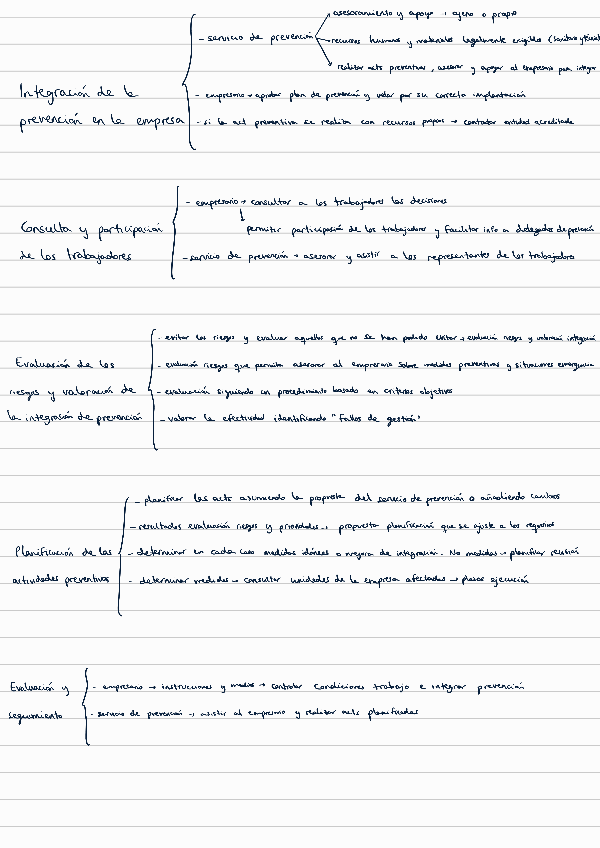 asesoramiento y apoyo → ajeno o propio
- servicio de prevención → recursos humanos y materiales legalmente exigibles (sanitario y técnico
realizar acts preventivas, asesorar y apoyar al empresario para integrar
Integración de la
prevención en la empresa
- empresario → aprobar plan de prevención y velar por su correcta implantación
- si la act preventiva se realiza con recursos propios → contratar entidad acreditada
- empresario → consultar a los trabajadores las decisiones
Consulta y participación
de los trabajadores
permitir participación de los trabajadores y facilitar info a delegados de prevención
- servicio de prevención → asesorar y asistir a los representantes de los trabajadores
- evitar los riesgos y evaluar aquellos que no se han podido evitar → evaluación riesgos y valoración integración
Evaluación de los
riesgos y valoración de
la integración de prevención
- evaluación riesgos que permita asesorar al empresario sobre medidas preventivas y situaciones emergencia
- evaluación siguiendo un procedimiento basado en criterios objetivos
- valorar la efectividad identificando "fallos de gestión"
- planificar las acts asumiendo la propuesta del servicio de prevención o añadiendo cambios
- resultados evaluación riesgos y prioridades → propuesta planificación que se ajuste a los requisitos
Planificación de las
actividades preventivas
- determinar en cada caso medidas idóneas o mejora de integración. No medidas → planificar revisión
- determinar medidas → consultar unidades de la empresa afectadas → plazos ejecución
Evaluación y
seguimiento
- empresario → instrucciones y medios → controlar condiciones trabajo e integrar prevención
- servicio de prevención → asistir al empresario y realizar acts planificadas